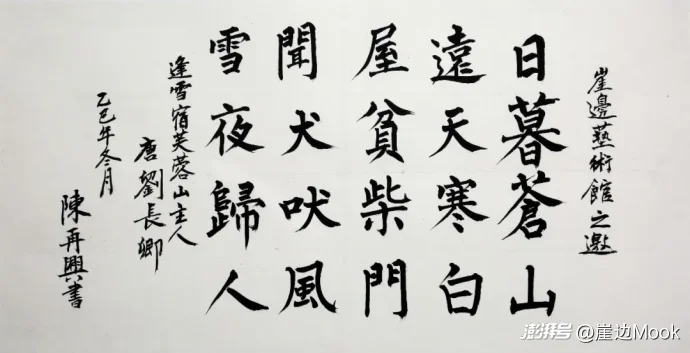 崖邊藝術館之邀
日暮蒼山
遠天寒白
屋貧柴門
聞犬吠風
雪夜歸人
逢雪宿芙蓉山主人
唐劉長卿
乙巳年冬月
陳再興書
澎湃号 @崖边Mook